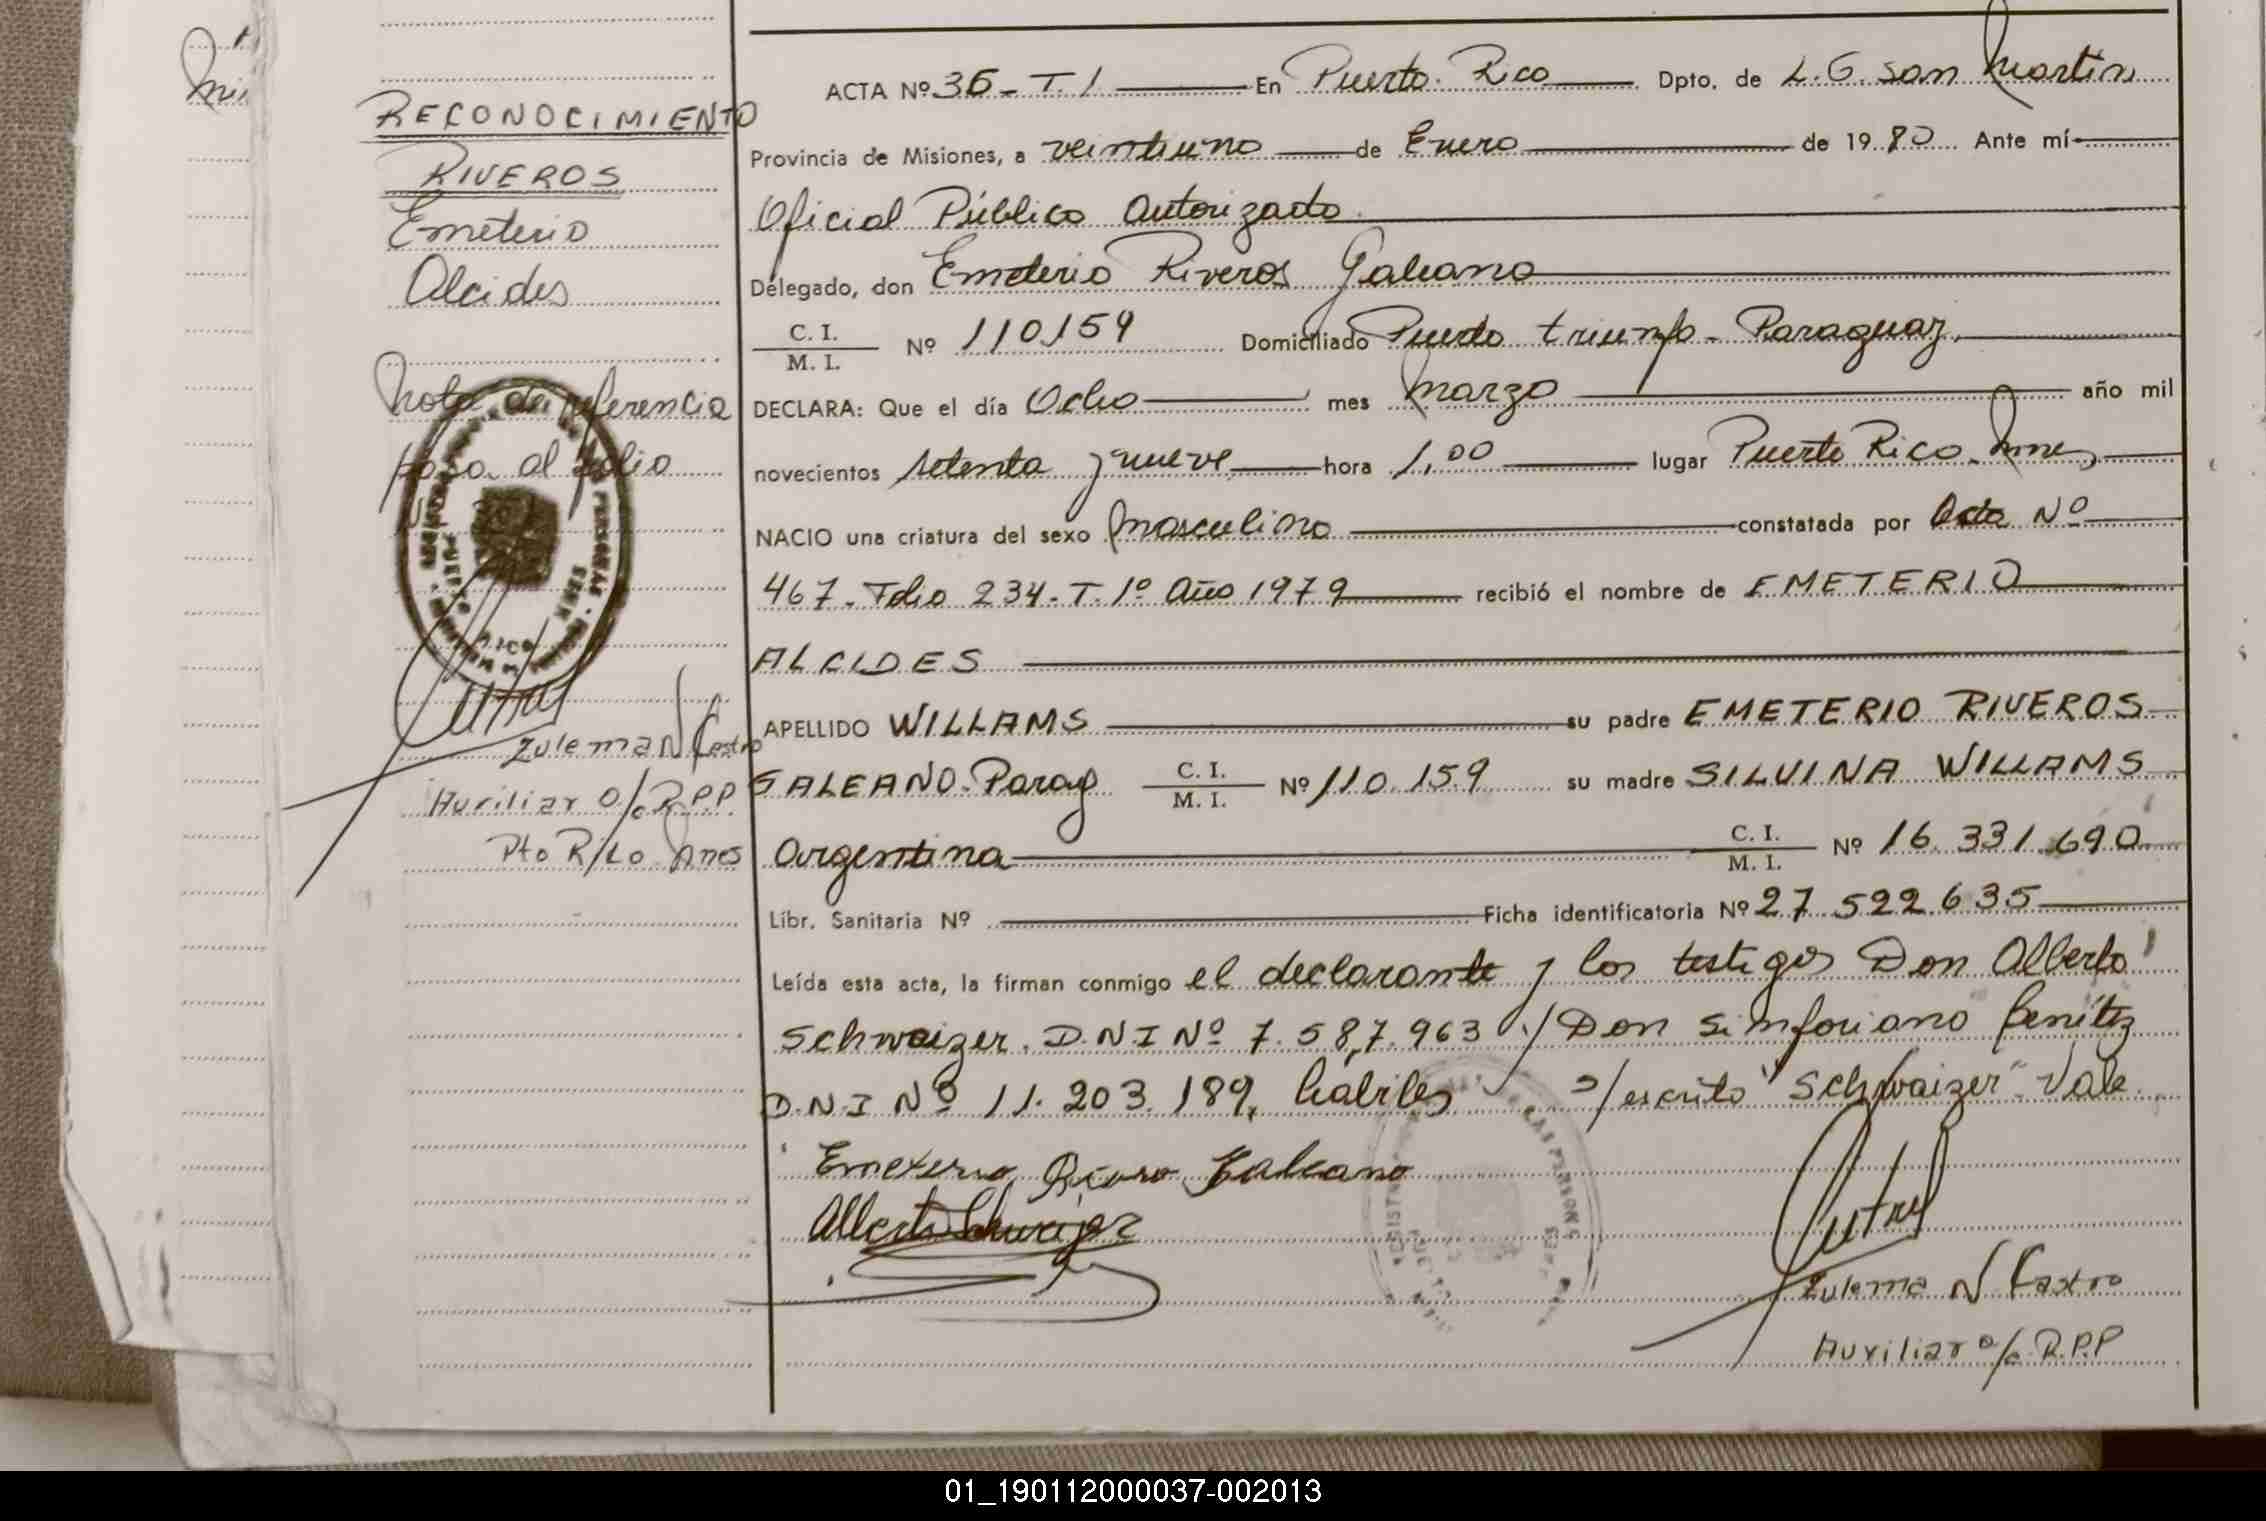 RECONOCIMIENTO
RIVEROS
Emeterio
Alcides
Nota de referencia
pasa al folio
Zulema N Castro
Auxiliar O/c R.P.P
Pto Rico Mnes
ACTA Nº 36-T.1 En Puerto Rico Dpto. de L.G. San Martin
Provincia de Misiones, a veintiuno de Enero de 1980 Ante mí
Oficial Público Autorizado
Delegado, don Emeterio Riveros Galeano
C. I.
M. I. Nº 110.159 Domiciliado Puerto triunfo - Paraguay
DECLARA: Que el día Ocho mes marzo año mil
novecientos setenta y nueve hora 1,00 lugar Puerto Rico. Mnes
NACIO una criatura del sexo masculino constatada por Acta Nº
467. Folio 234. T. 1º Año 1979 recibió el nombre de EMETERIO
ALCIDES
APELLIDO WILLAMS su padre EMETERIO RIVEROS
GALEANO. Parag C. I.
M. I. Nº 110.159 su madre SILVINA WILLAMS
Argentina C. I.
M. I. Nº 16.331.690
Libr. Sanitaria Nº Ficha identificatoria Nº 27 522.635
Leída esta acta, la firman conmigo el declarante y los testigos Don Alberto
Schwaizer. D.N.I Nº 7.587.963 y Don Simforiano Benítez
D.N.I Nº 11.203.189, hábiles s/escrito "Schwaizer" Vale
Emeterio Galeano
Zulema N Castro
Auxiliar o/c R.P.P
01_190112000037-002013